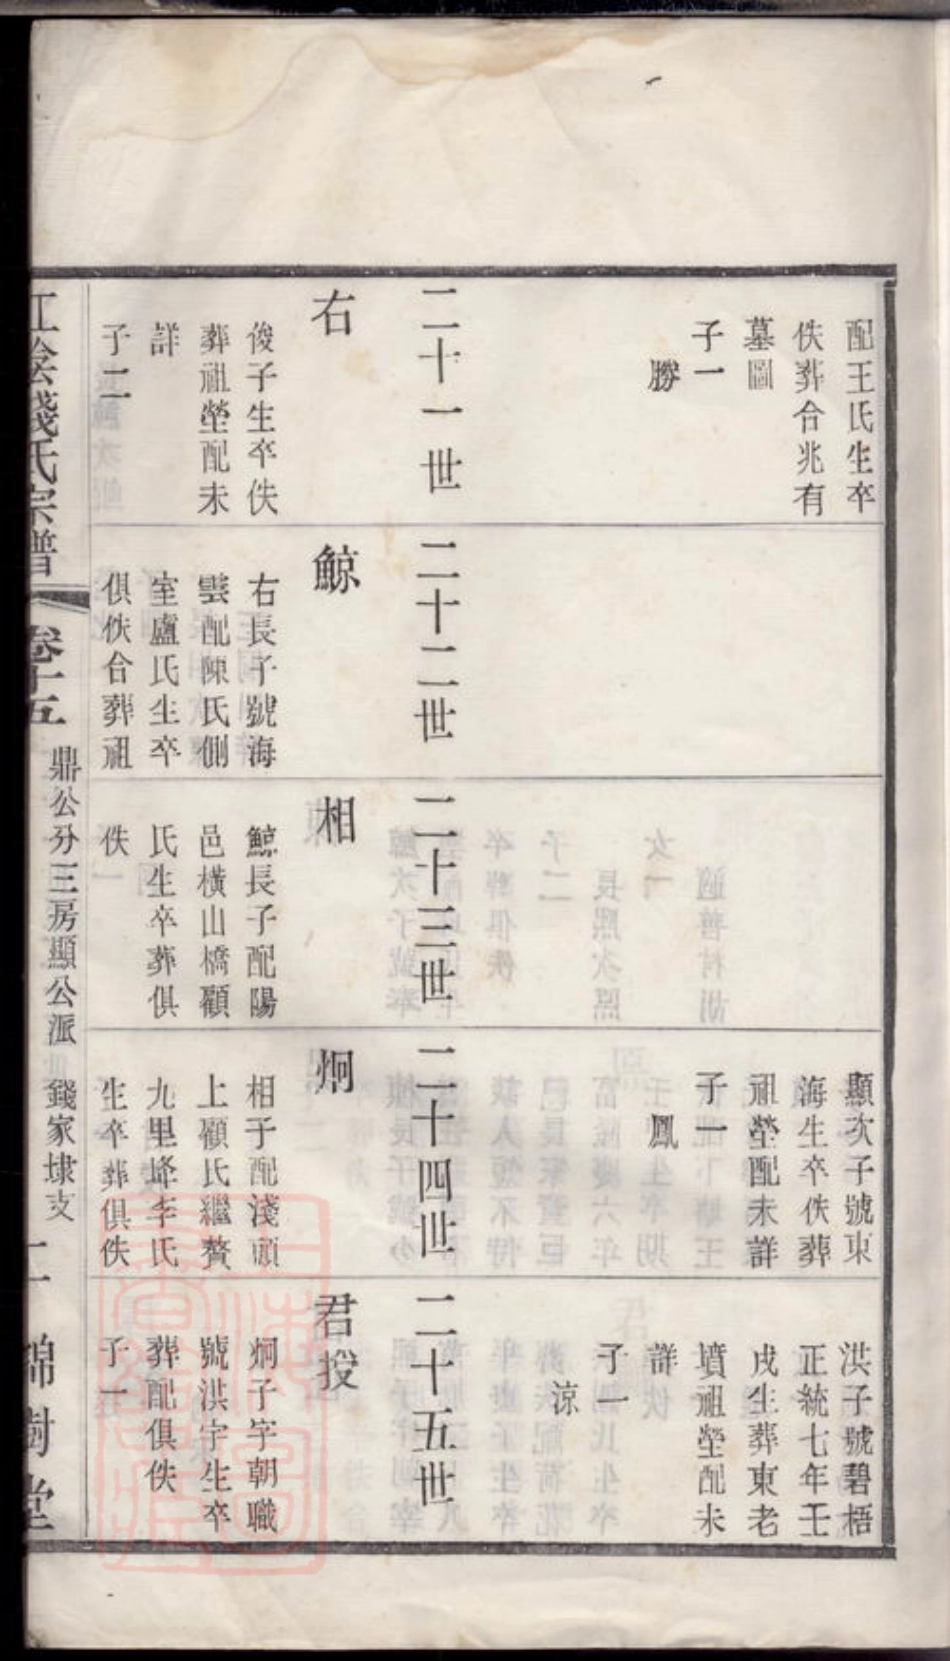 配王氏生卒
佚葬合兆有
墓圖
子一
勝
顯次子號東
海生卒佚葬
祖塋配未詳
子一
鳳
洪子號碧梧
正統七年壬
戌生葬東老
墳祖塋配未
詳
子一
涼
二十一世
二十二世
二十三世
二十四世
二十五世
右
俊子生卒佚
葬祖塋配未
詳
子二
鯨
右長子號海
雲配陳氏側
室盧氏生卒
俱佚合葬祖
相
鯨長子配陽
邑橫山橋顧
氏生卒葬俱
佚
炯
相子配淺頭
上顧氏繼贅
九里峰李氏
生卒葬俱佚
君授
炯子字朝職
號洪宇生卒
葬配俱佚
子一
江陰錢氏宗譜
卷十五
鼎公分三房顯公派 錢家埭支
錦樹堂